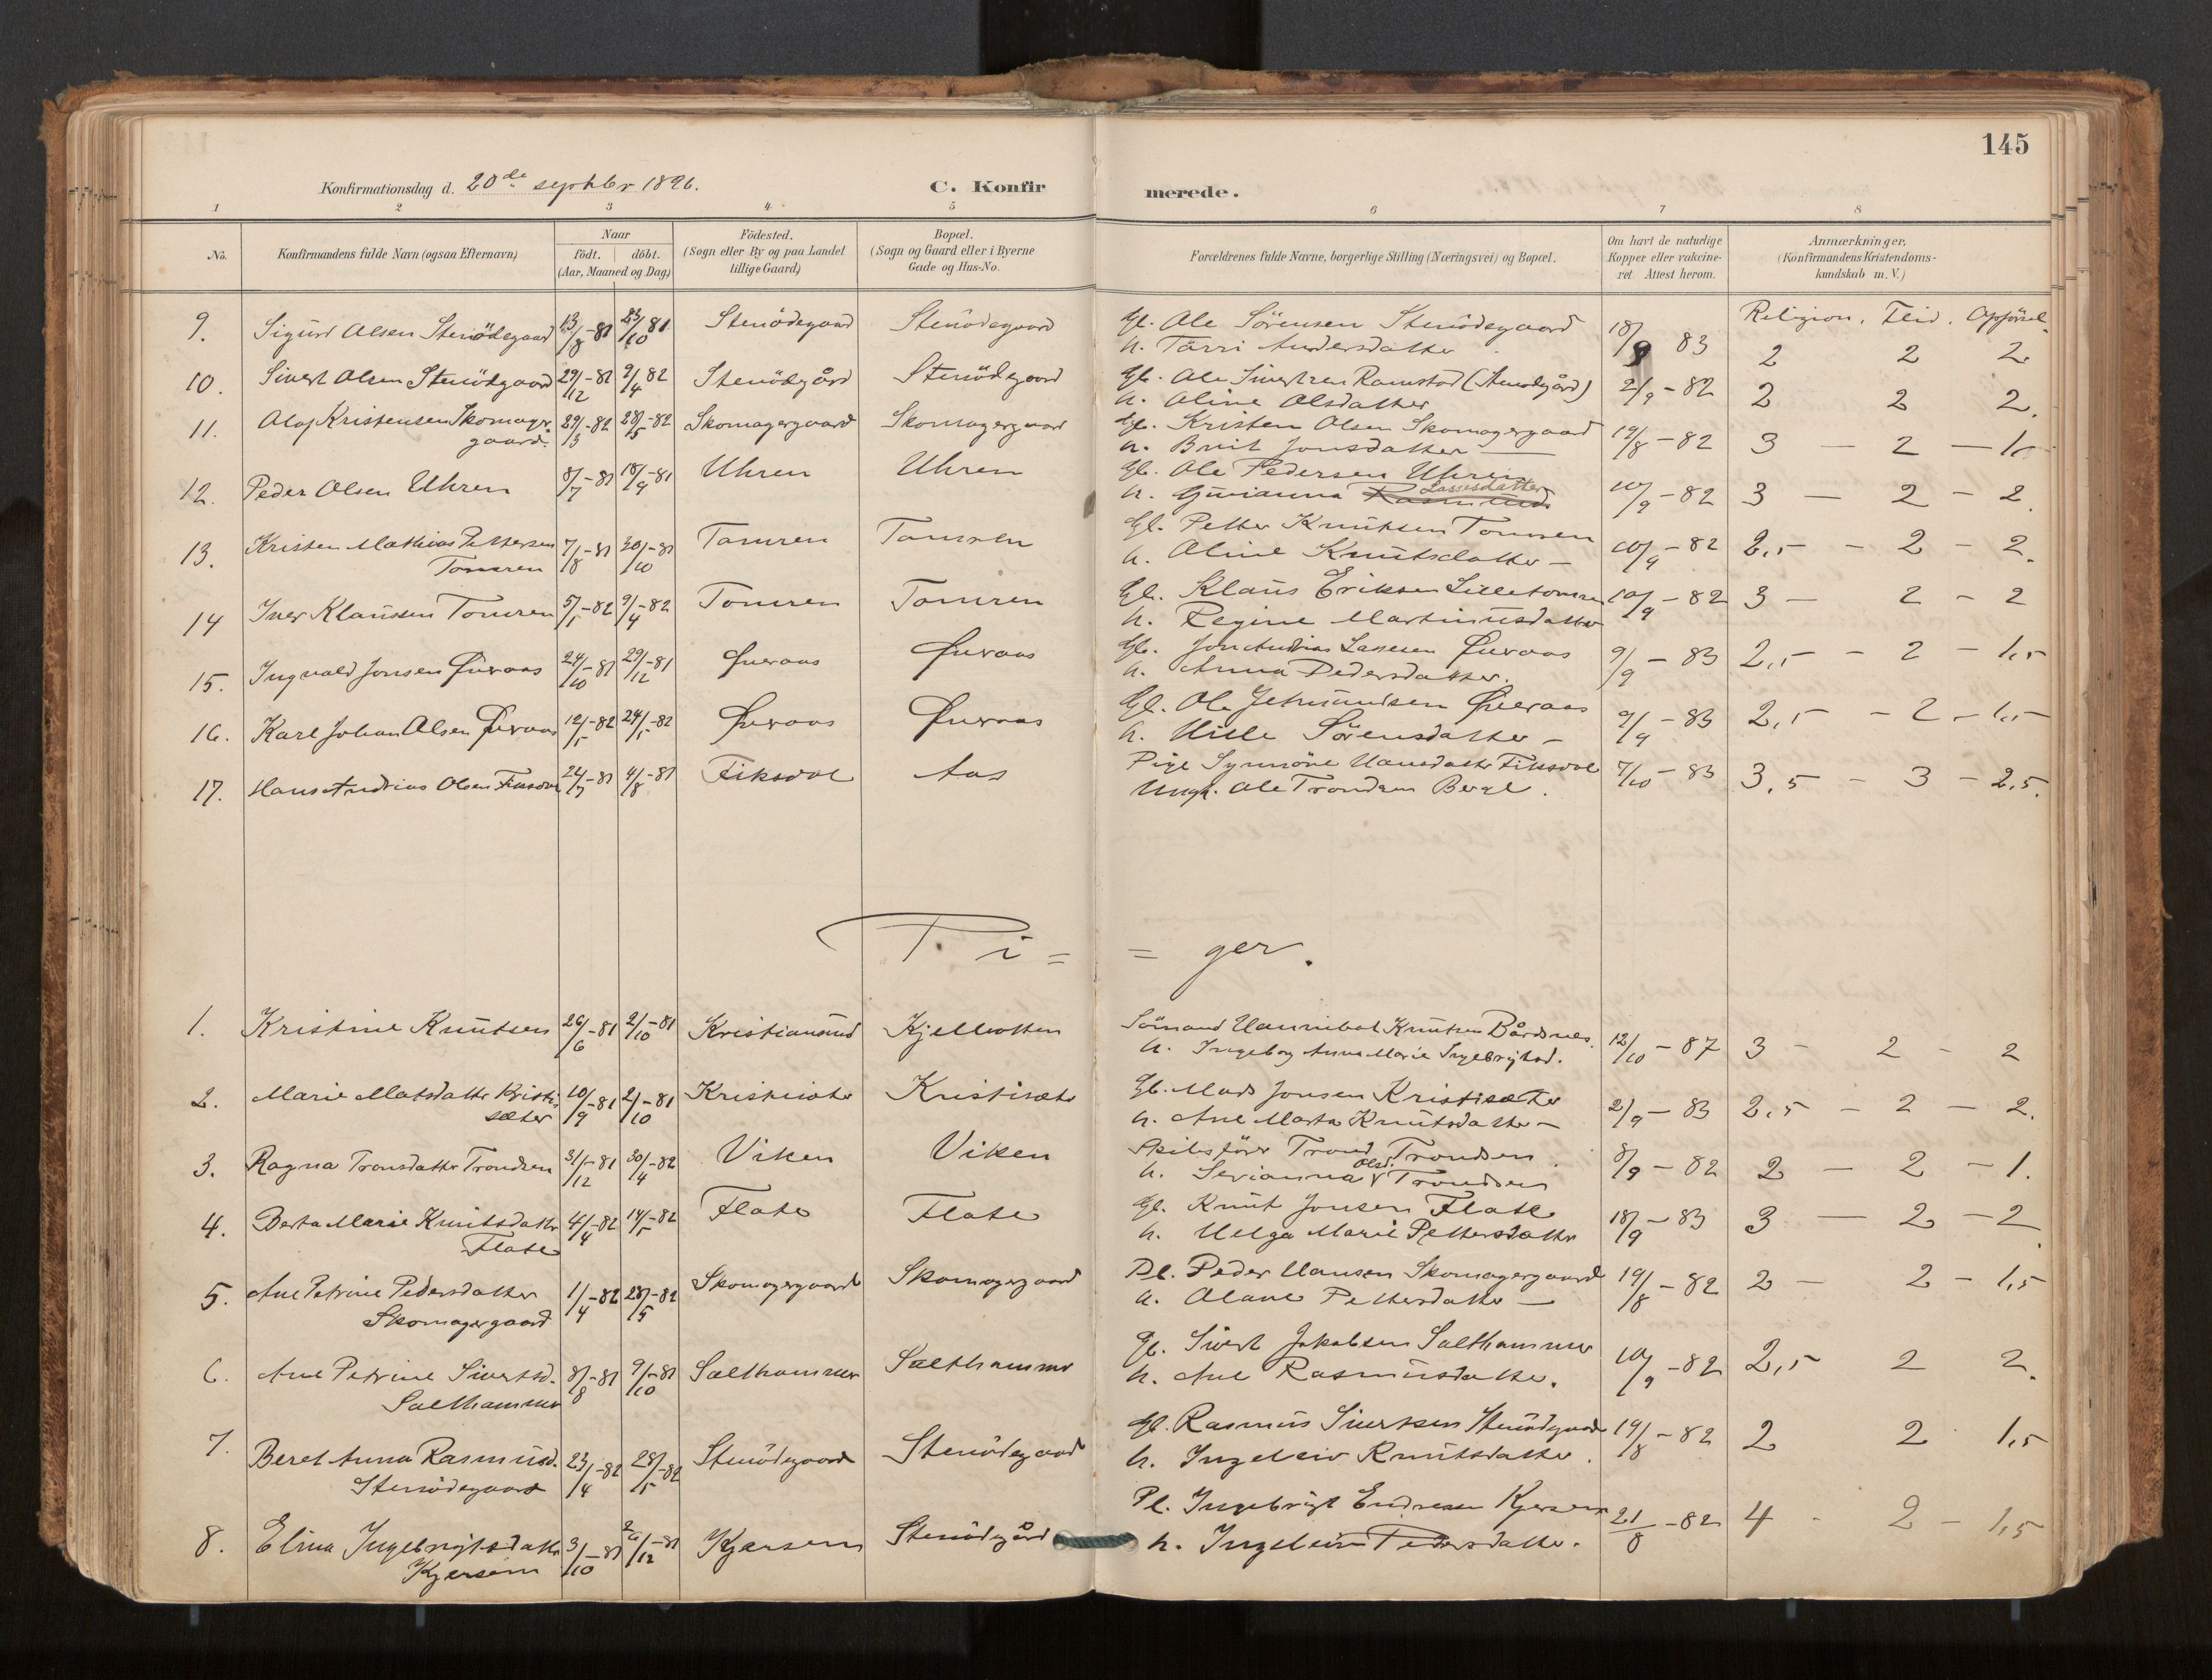 145
Konfirmationsdag d. 20de septbr 1896.
C. Konfirmerede.
1 2 3 4 5 6 7 8
No.
Konfirmandens fulde Navn (ogsaa Efternavn)
Naar
födt. döbt.
(Aar, Maaned og Dag)
Födested.
(Sogn eller By og paa Landet
tillige Gaard)
Bopæl.
(Sogn og Gaard eller i Byerne
Gade og Hus-No.
Forældrenes fulde Navne, borgerlige Stilling (Næringsvei) og Bopæl.
Om havt de naturlige
Kopper eller vakcine-
ret. Attest herom.
Anmærkninger.
(Konfirmandens Kristendoms-
kundskab m. V.)
Religion. Flid. Opförsel.
9. Sigurd Olsen Stenödegaard 13/8-81 23/10 81 Stenödegaard Stenödegaard Gb. Ole Sörensen Stenödegaard 18/9 83 2 2 2
h. Tárri Andersdatter
10. Sivert Olsen Stenödgaard 29/12-81 9/4 82 Stenödegård Stenödegaard Gb. Ole Sivertsen Ramstad (Stenodgård) 2/9-82 2 2 2.
h. Oline Olsdatter
11. Olaf Kristensen Skomager- 29/3-82 28/5-82 Skomagergaard Skomagergaard Gb. Kristen Olsen Skomagergaard 19/8-82 3 — 2 — 1
gaard.
h. Brit Jonsdatter —
12. Peder Olsen Uhren 8/7-81 18/9-81 Uhren Uhren Gb. Ole Pedersen Uhren 10/9-82 3 — 2 — 2.
h. Gurianna Lassesdatter
13. Kristen Mathias Pettersen 7/8-81 30/10-81 Tomren Tomren Gb. Petter Knutsen Tomren 10/9-82 2,5 - 2 - 2.
Tomren
h. Oline Knutsdatter —
14 Iver Klausen Tomren 5/1-82 9/4-82 Tomren Tomren Gb. Klaus Eriksen Lilletomren 10/9-82 3 — 2 - 2
h. Regine Martinusdatter
15. Ingvald Jonsen Øveraas 24/10-81 29/12-81 Øveraas Øveraas Gb. Jon Andrias Lassesen Øveraas 9/9-83 2,5 - 2 - 1,5
h. Anna Pedersdatter.
16. Karl Johan Olsen Øveraas 12/1-82 24/5-82 Øveraas Øveraas Gb. Ole Jetmundsen Øveraas 9/9-83 2,5 - 2 - 1,5
h. Hille Sörensdatter —
17. Hans Andrias Olsen Fiksdal 24/7-81 4/8-81 Fiksdal Aas Pige Synnöve Hansdatter Fiksdal 7/10-83 3,5 - 3 - 2,5.
Ungk. Ole Trondsen Berge.
Pi= =ger.
1. Kristine Knutsen 26/6-81 2/10-81 Kristiansund Kjelbotten Sömand Hannibal Knutsen Bårdsnes. 12/10-87 3 - 2 - 2
h. Ingeborg Anna Marie Ingebrigtsd.
2. Marie Matsdatter Kristi- 10/9-81 2/10-81 Kristisäter Kristisæter Gb. Mads Jonsen Kristisæter 2/9-83 2,5 - 2 - 2.
sæter
h. Ane Marta Knutsdatter —
3. Ragna Tronsdatter Trondsen 31/12-81 30/4-82 Viken Viken Skibsförer Trond Trondsen. 8/9-82 2 — 2 - 1.
h. Serianna Olsd. Trondsen
4. Berta Marie Knutsdatter 4/4-82 14/5-82 Flate Flate Gb. Knut Jonsen Flate 18/9-83 3 — 2 - 2
Flate
h. Helga Marie Pettersdatter
5. Ane Petrine Pedersdatter 1/4-82 28/5-82 Skomagergaard Skomagergaard Pl. Peder Hansen Skomagergaard 19/8-82 2 — 2 - 1,5
Skomagergaard
h. Olave Pettersdatter —
6. Ane Petrine Sivertsd. 8/8-81 9/10-81 Salthammer Salthammer Gb. Sivert Jakobsen Salthammer 10/9-82 2,5 2 2.
Salthammer
h. Ane Rasmusdatter.
7. Beret Anna Rasmusd. 23/4-82 28/5-82 Stenödegaard Stenödegaard Gb. Rasmus Sivertsen Stenödgaard 19/8-82 2 2 1,5
Stenödegaard
h. Ingeleiv Knutsdatter.
8. Elina Ingebrigtsdatter 3/10-81 26/12-81 Kjersem Stenödgård Pl. Ingebrigt Endresen Kjersem 21/8-82 4 - 2 - 1,5
Kjersem
h. Ingeleiv Pedersdatter.